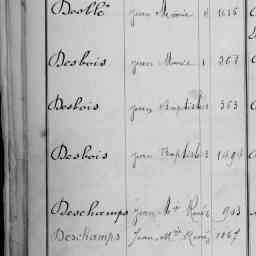 Desblé Jean Marie 1 1616
Desbois Jean Marie 1 367
Desbois Jean Baptiste 363
Desbois Jean Baptiste 1494
Deschamps Jean Mie René 943
Deschamps Jean Mie René 1867